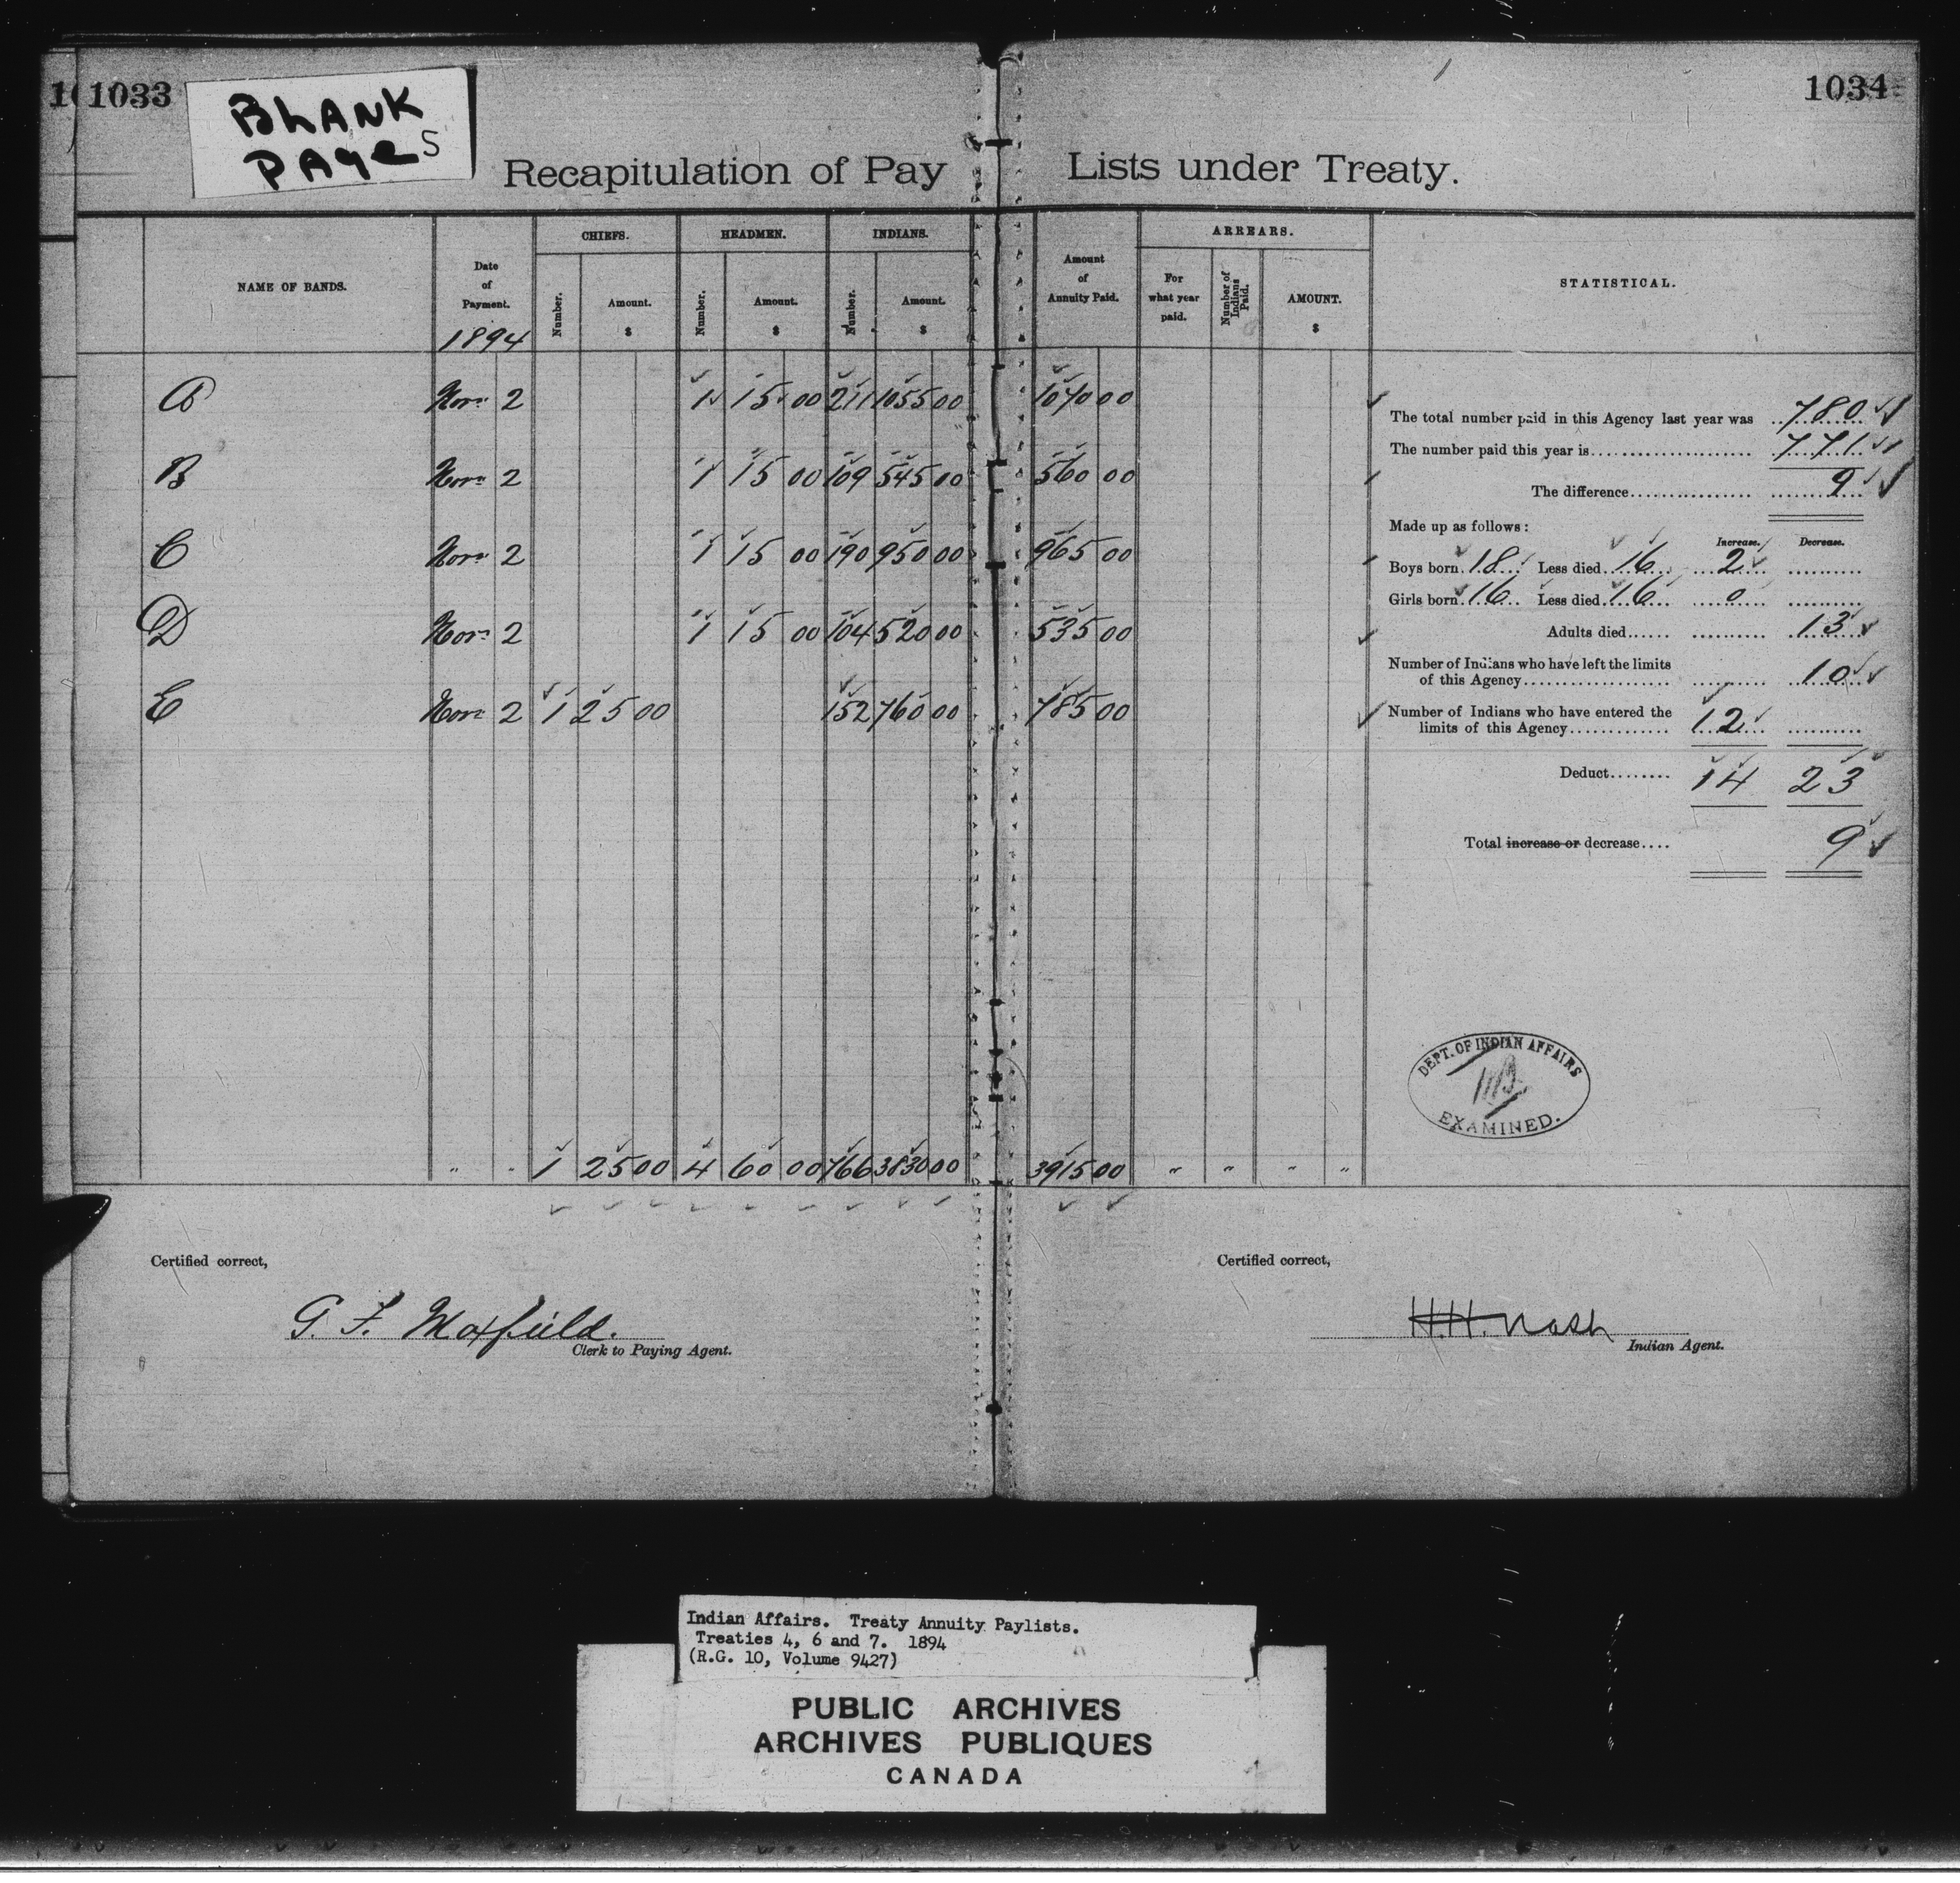 1033
BLANK
PAGES
1034
Recapitulation of Pay Lists under Treaty.
CHIEFS. HEADMEN. INDIANS. ARREARS.
NAME OF BANDS. Date of Payment. Number. Amount. $ Number. Amount. $ Number. Amount. $ Amount of Annuity Paid. For what year paid. Number of Indians Paid. AMOUNT. $ STATISTICAL.
1894
A Nov. 2 1 15 00 211 1055 00 1070 00
B Nov. 2 1 15 00 109 545 00 560 00
C Nov. 2 1 15 00 190 950 00 965 00
D Nov. 2 1 15 00 104 520 00 535 00
E Nov. 2 1 25 00 152 760 00 785 00
" " 1 25 00 4 60 00 766 3830 00 3915 00 " " " "
The total number paid in this Agency last year was 780
The number paid this year is 771
The difference 9
Made up as follows:
Increase. Decrease.
Boys born 18 Less died 16 2
Girls born 16 Less died 16 0
Adults died 13
Number of Indians who have left the limits
of this Agency 10
Number of Indians who have entered the
limits of this Agency 12
Deduct 14 23
Total increase or decrease 9
DEPT. OF INDIAN AFFAIRS
EXAMINED.
Certified correct,
G. F. Maxfield.
Clerk to Paying Agent.
Certified correct,
H.H. Nash
Indian Agent.
Indian Affairs. Treaty Annuity Paylists.
Treaties 4, 6 and 7. 1894
(R.G. 10, Volume 9427)
PUBLIC ARCHIVES
ARCHIVES PUBLIQUES
CANADA